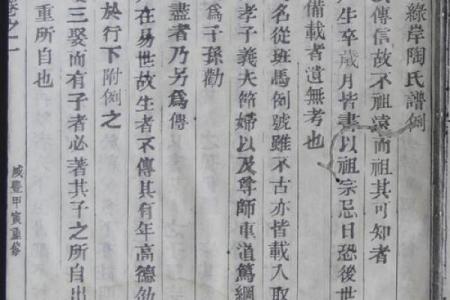 綠岸陶氏譜例
傳信故不祖遠而祖其可知者
生卒歲月皆書以祖宗忌日恐後世
備載者遺無考也
名從班馬例號雖不古亦皆載入取
孝子義夫節婦以及尊師重道篤綱
爲子孫勸
盡者乃另爲傳
在易世故生者不傳其有年高德劭
於行下附例之
三娶而有子者必著其子之所自出
重所自也
卷之一
咸豐甲寅重修